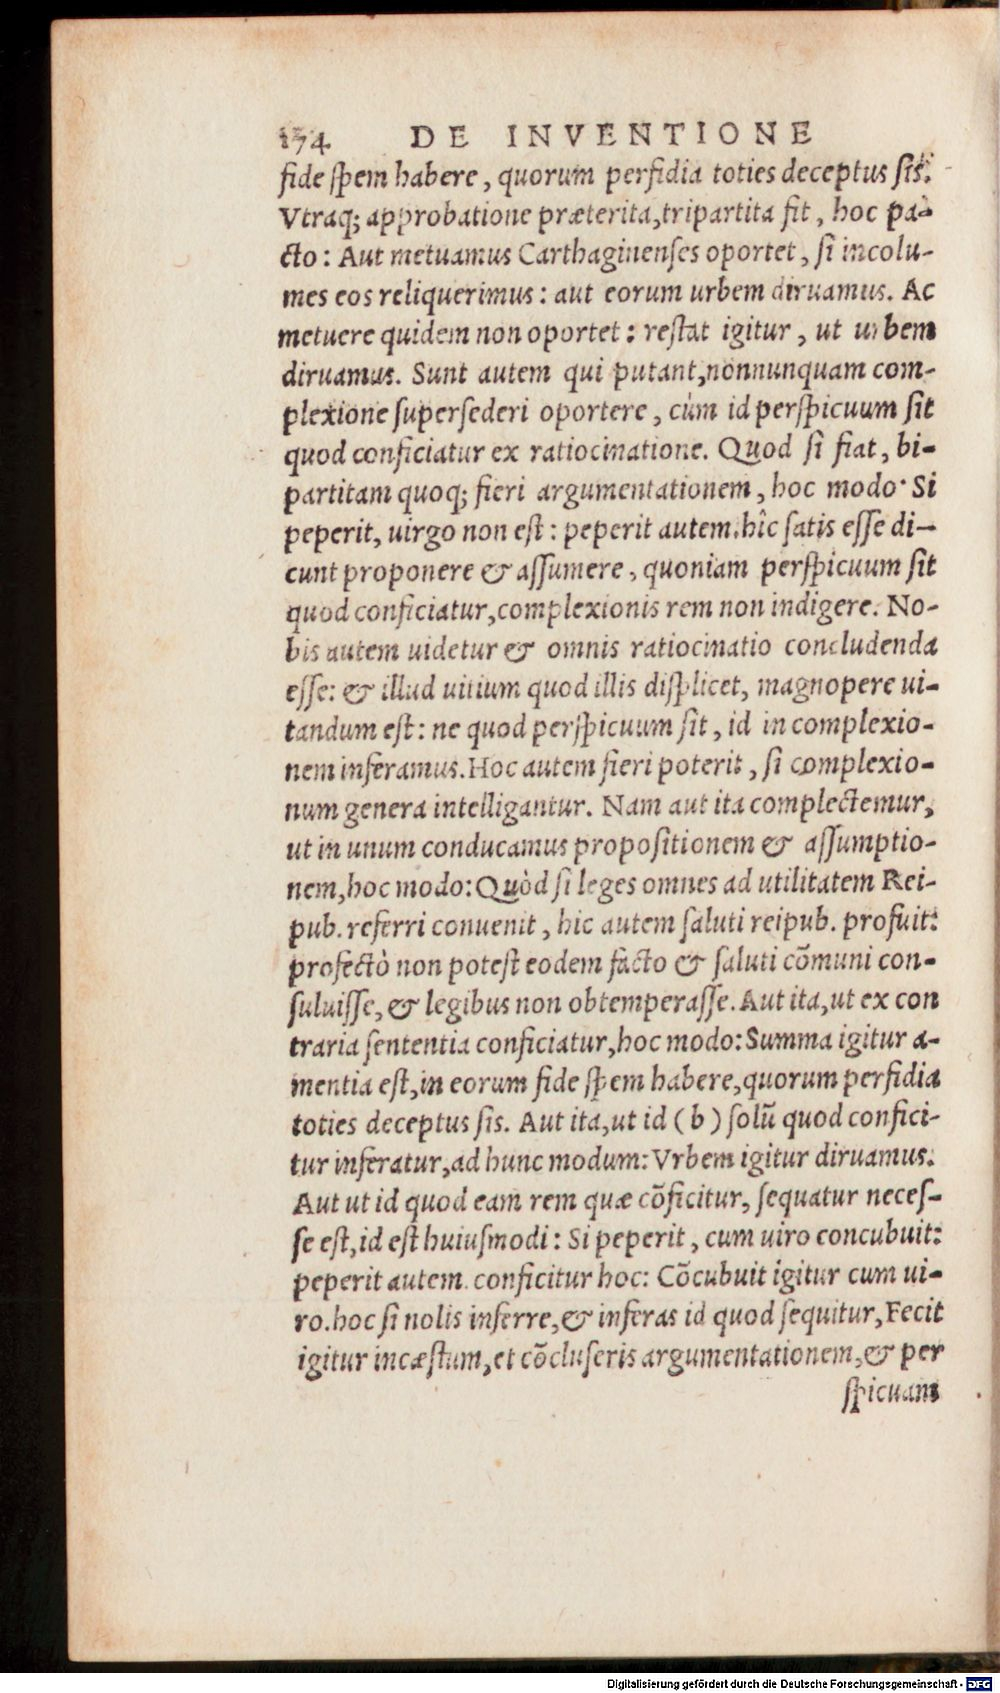 174 DE INVENTIONE
fide spem habere, quorum perfidia toties deceptus sis.
Vtraq; approbatione præterita, tripartita fit, hoc pa-
cto: Aut metuamus Carthaginenses oportet, si incolu-
mes eos reliquerimus: aut eorum urbem diruamus. Ac
metuere quidem non oportet: restat igitur, ut urbem
diruamus. Sunt autem qui putant, nonnunquam com-
plexione supersederi oportere, cùm id perspicuum sit
quod conficiatur ex ratiocinatione. Quod si fiat, bi-
partitam quoq; fieri argumentationem, hoc modo· Si
peperit, uirgo non est: peperit autem. hîc satis esse di-
cunt proponere & assumere, quoniam perspicuum sit
quod conficiatur, complexionis rem non indigere. No-
bis autem uidetur & omnis ratiocinatio concludenda
esse: & illud uitium quod illis displicet, magnopere ui-
tandum est: ne quod perspicuum sit, id in complexio-
nem inferamus. Hoc autem fieri poterit, si complexio-
num genera intelligantur. Nam aut ita complectemur,
ut in unum conducamus propositionem & assumptio-
nem, hoc modo: Quòd si leges omnes ad utilitatem Rei-
pub. referri conuenit, hic autem saluti reipub. profuit:
profectò non potest eodem facto & saluti cõmuni con-
suluisse, & legibus non obtemperasse. Aut ita, ut ex con
traria sententia conficiatur, hoc modo: Summa igitur a-
mentia est, in eorum fide spem habere, quorum perfidia
toties deceptus sis. Aut ita, ut id ( b ) solũ quod confici-
tur inferatur, ad hunc modum: Vrbem igitur diruamus.
Aut ut id quod eam rem quæ cõficitur, sequatur neces-
se est, id est huiusmodi: Si peperit, cum uiro concubuit:
peperit autem. conficitur hoc: Cõcubuit igitur cum ui-
ro. hoc si nolis inferre, & inferas id quod sequitur, Fecit
igitur incæstum, et cõcluseris argumentationem, & per
spicuam
Digitalisierung gefördert durch die Deutsche Forschungsgemeinschaft - DFG